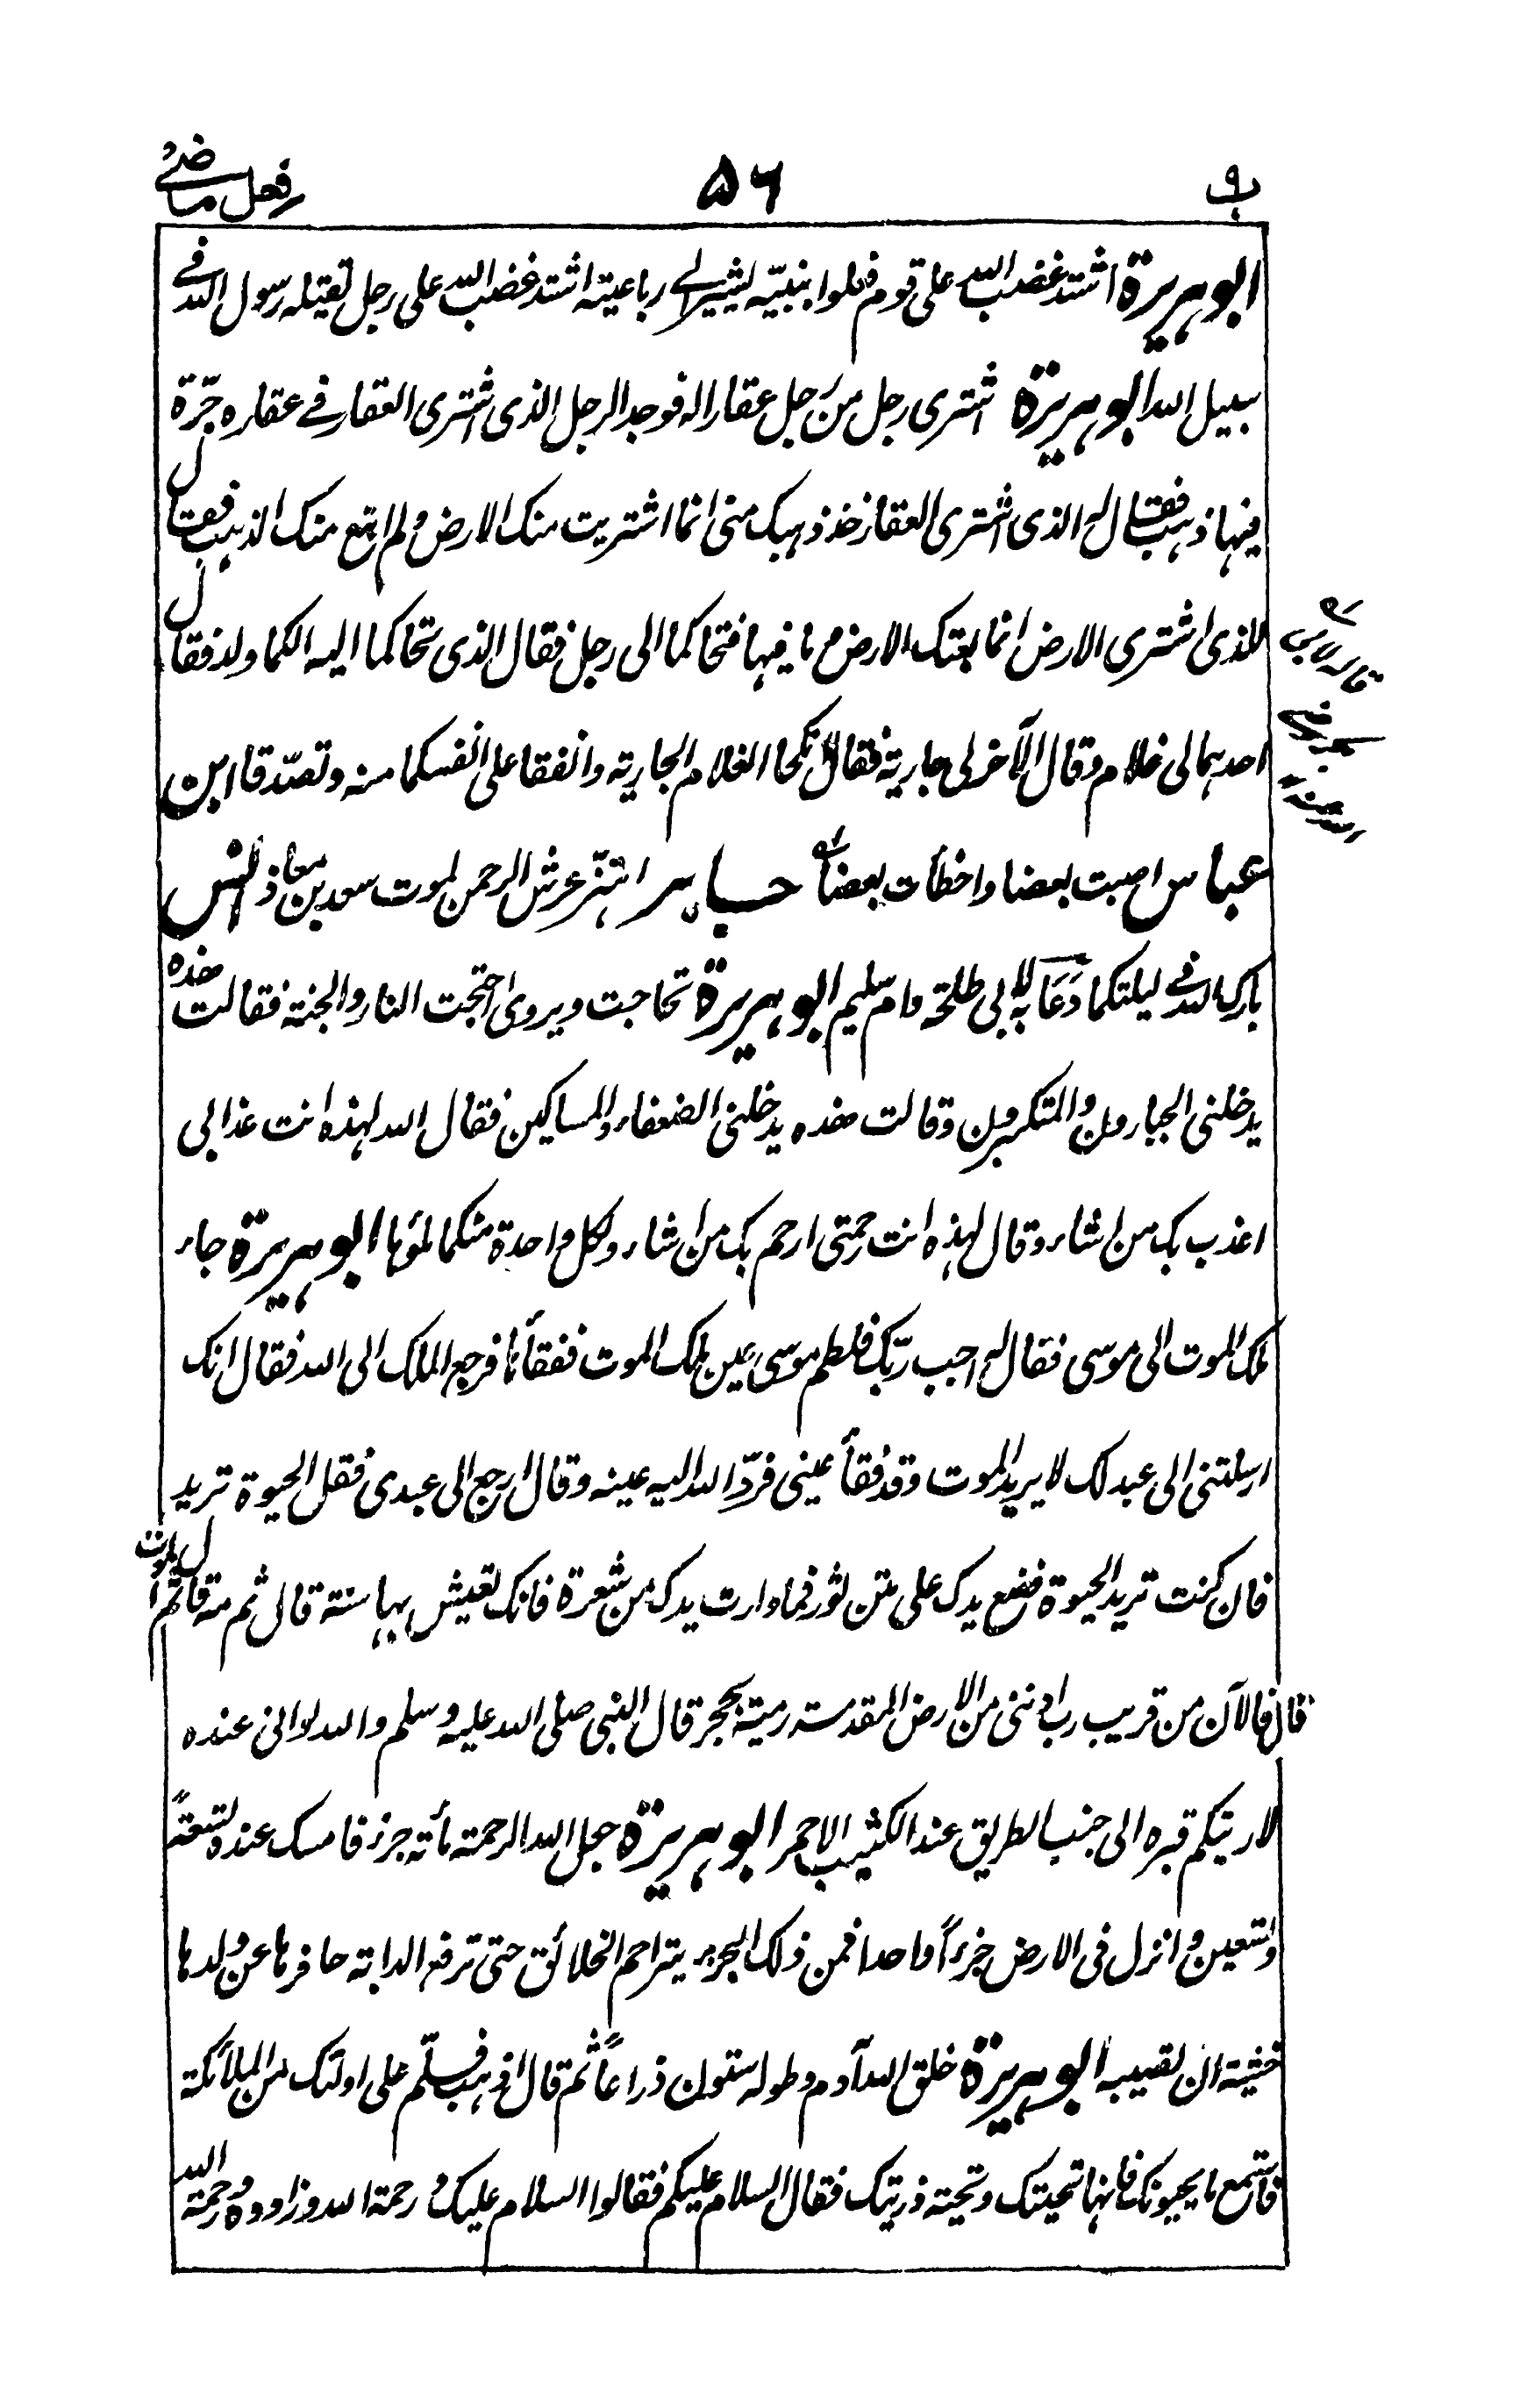 ب٩ ٥٦ فعل ماضى
ابوهريرة اشتد غضب الله على قوم فعلوا بنبيّه يشير الى رباعيته اشتد غضب الله على رجل يقتله رسول الله فى
سبيل الله ابوهريرة اشترى رجل من رجل عقارا له فوجد الرجل الذى اشترى العقار فى عقاره جرّة
فيها ذهب فقال له الذى اشترى العقار خذ ذهبك منى انما اشتريت منك الارض ولم ابتع منك الذهب فقال
للذى اشترى الارض انما بعتك الارض وما فيها فتحاكما الى رجل فقال الذى تحاكما اليه الكما ولد فقال
احدهما لى غلام وقال الآخر لى جارية فقال انكحا الغلام الجارية وانفقا على انفسكما منه وتصدّقا ابن
عباس اصبت بعضا واخطأت بعضا جابر اهتزّ عرش الرحمن لموت سعد بن معاذ انس
بارك الله فى ليلتكما دَعَا به لابى طلحة وام سليم ابوهريرة تحاجت ويروى احتجت النار والجنة فقالت هذه
يدخلنى الجبارون والمتكبرون وقالت هذه يدخلنى الضعفاء والمساكين فقال الله لهذه انت عذابى
اعذب بك من اشاء وقال لهذه انت رحمتى ارحم بك من اشاء ولكل واحدة منكما ملؤها ابوهريرة جاء
ملك الموت الى موسى فقال له اجب ربّك فلطم موسى عين ملك الموت ففقأها فرجع الملك الى الله فقال انك
ارسلتنى الى عبد لك لا يريد الموت وقد فقأ عينى فردّ الله اليه عينه وقال ارجع الى عبدى فقل الحيوة تريد
فان كنت تريد الحيوة فضع يدك على متن ثور فما وارت يدك من شعرة فانك تعيش بها سنة قال ثم مه قال ثم الموت
قال فالآن من قريب رب ادننى من الارض المقدسة رمية بحجر قال النبى صلى الله عليه وسلم والله لو انى عنده
لاريتكم قبره الى جنب الطريق عند الكثيب الاحمر ابوهريرة جعل الله الرحمة مأته جزء فامسك عنده تسعةً
وتسعين وانزل فى الارض جزءاً واحدا فمن ذلك الجزء يتراحم الخلائق حتى ترفع الدابة حافرها عن ولدها
خشية ان تصيبه ابوهريرة خلق الله آدم وطوله ستون ذراعاً ثم قال اذهب فسلّم على اولئك من الملائكة
فاستمع ما يحيونك فانها تحيتك وتحية ذريتك فقال السلام عليكم فقالوا السلام عليك ورحمة الله وزادوه ورحمة الله
قاله لابى بكر رضى الله عنه